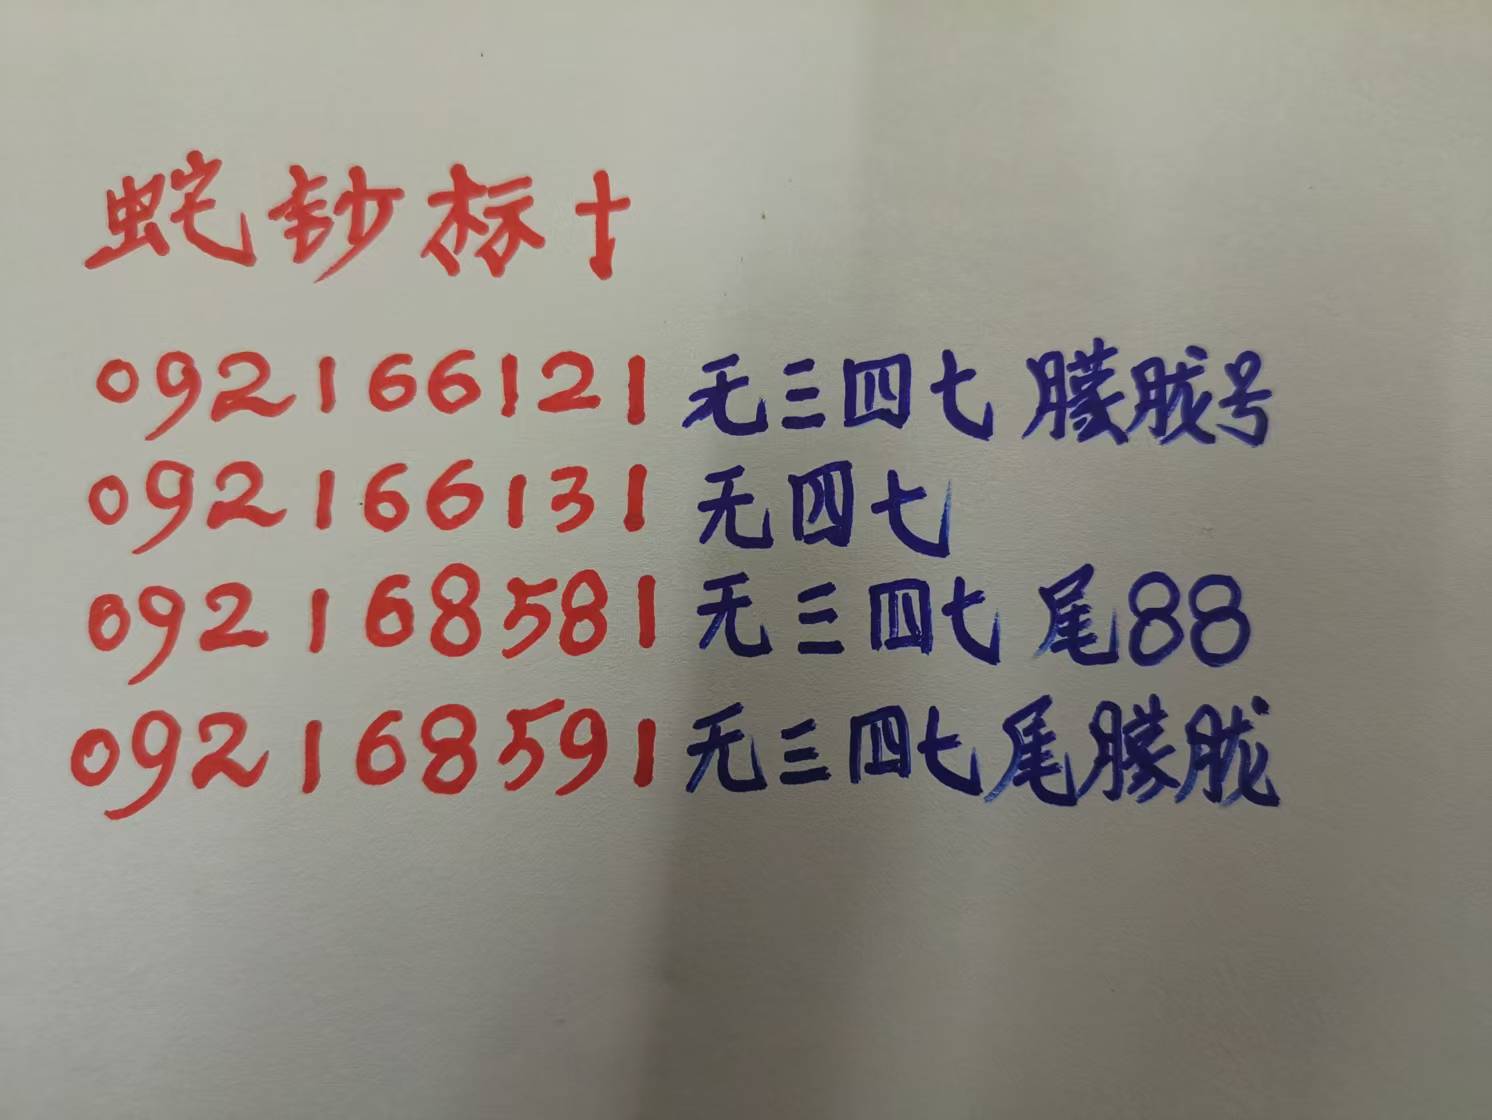 蛇钞标十
092166121 无三四七 朦胧号
092166131 无四七
092168581 无三四七 尾88
092168591 无三四七尾朦胧